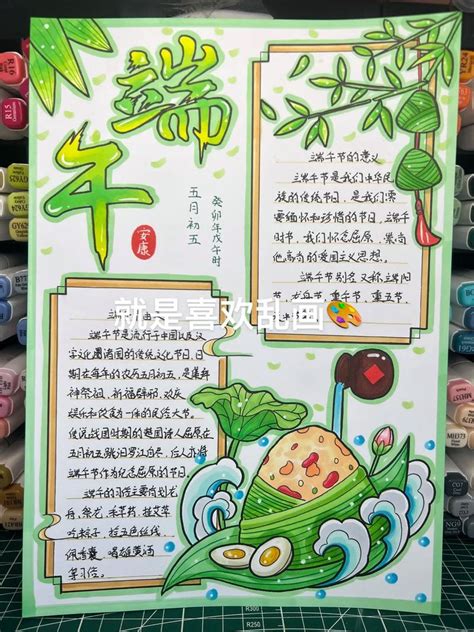 端午
癸卯年戊午时
五月初五
安康
端午节的意义
端午节是我们中华民
族的传统节日，是我们需
要缅怀和珍惜的节日，端午
时节，我们怀念屈原，崇尚
他高尚的爱国主义思想。
端午节别名又称端阳
节，龙舟节，重午节，重五节，
就是喜欢乱画
端午节是流行于中国以及汉
字文化圈诸国的传统文化节日，日
期在每年的农历五月初五，是集拜
神祭祖、祈福辟邪、欢庆
娱乐和饮食为一体的民俗大节。
传说战国时期的楚国诗人屈原在
五月初五跳汨罗江自尽，后人亦将
端午节作为纪念屈原的节日。
端午的习俗主要有划龙
舟，祭龙，采草药，挂艾草
吃粽子，拴五色丝线
佩香囊，喝雄黄酒
等习俗。
R16
R15
GY625
GY6
B77
MH373
C07
R300
R250